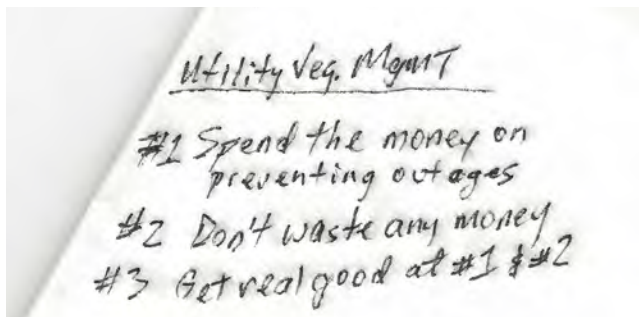 Utility Veg. Mgmt
#1 Spend the money on
preventing outages
#2 Don't waste any money
#3 Get real good at #1 & #2